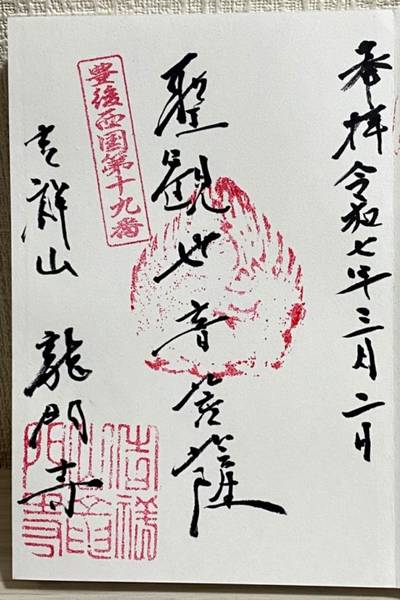 奉拝 令和七年三月二日
聖観世音菩薩
豊後西国第十九番
吉祥山 龍門寺